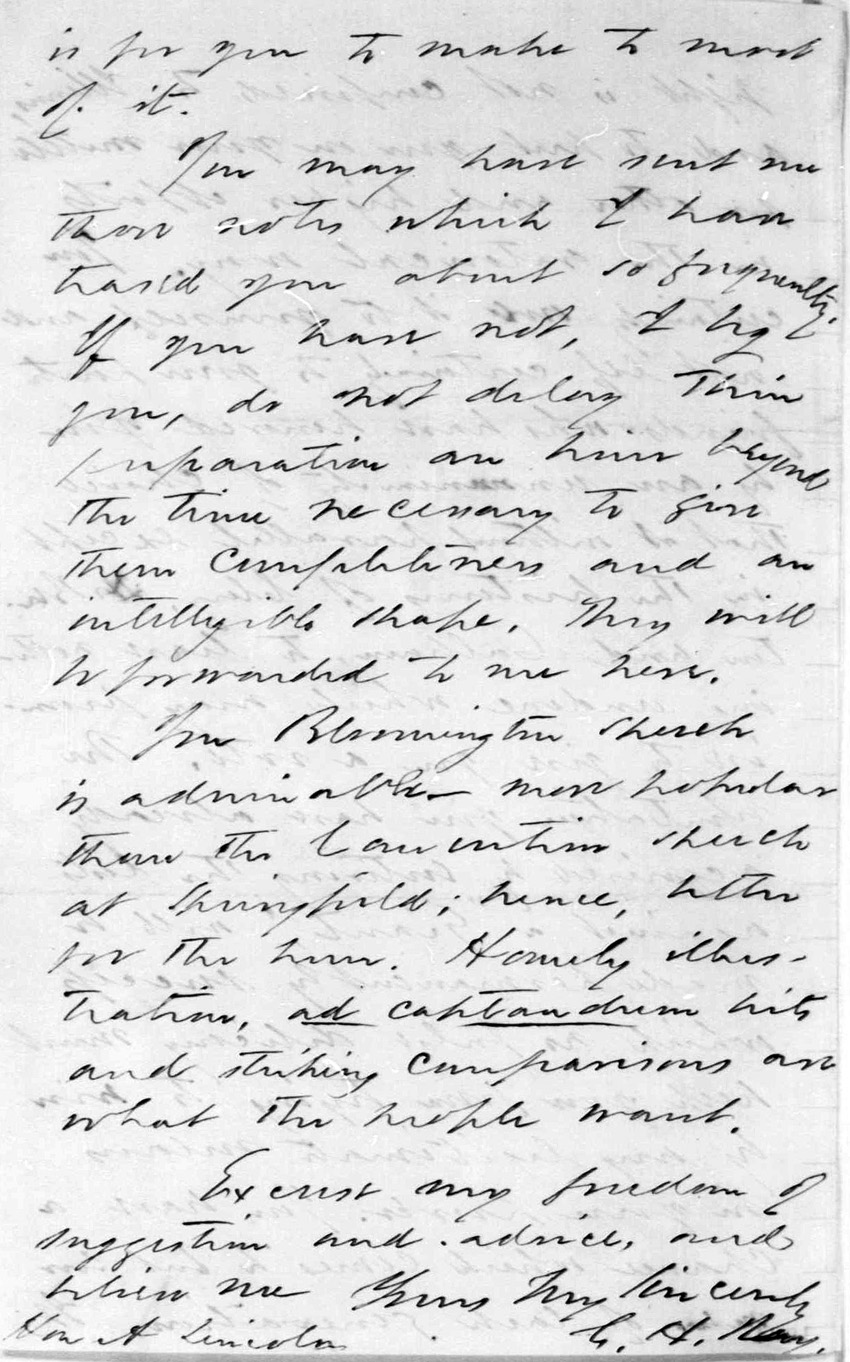 is for you to make to most
of it.
You may have sent me
those notes which I have
teased you about so frequently.
If you have not, I beg
you, do not delay their
preparation an hour beyond
the time necessary to give
them completeness and an
intelligible shape. They will
be forwarded to me here.
Your Bloomington speech
is admirable — more popular
than the Convention speech
at Springfield; hence, better
for the hour. Homely illus-
tration, ad captandum hits
and striking comparisons are
what the people want.
Excuse my freedom of
suggestion and advice, and
believe me Yours Very Sincerely
Hon A Lincoln C. H. Ray.